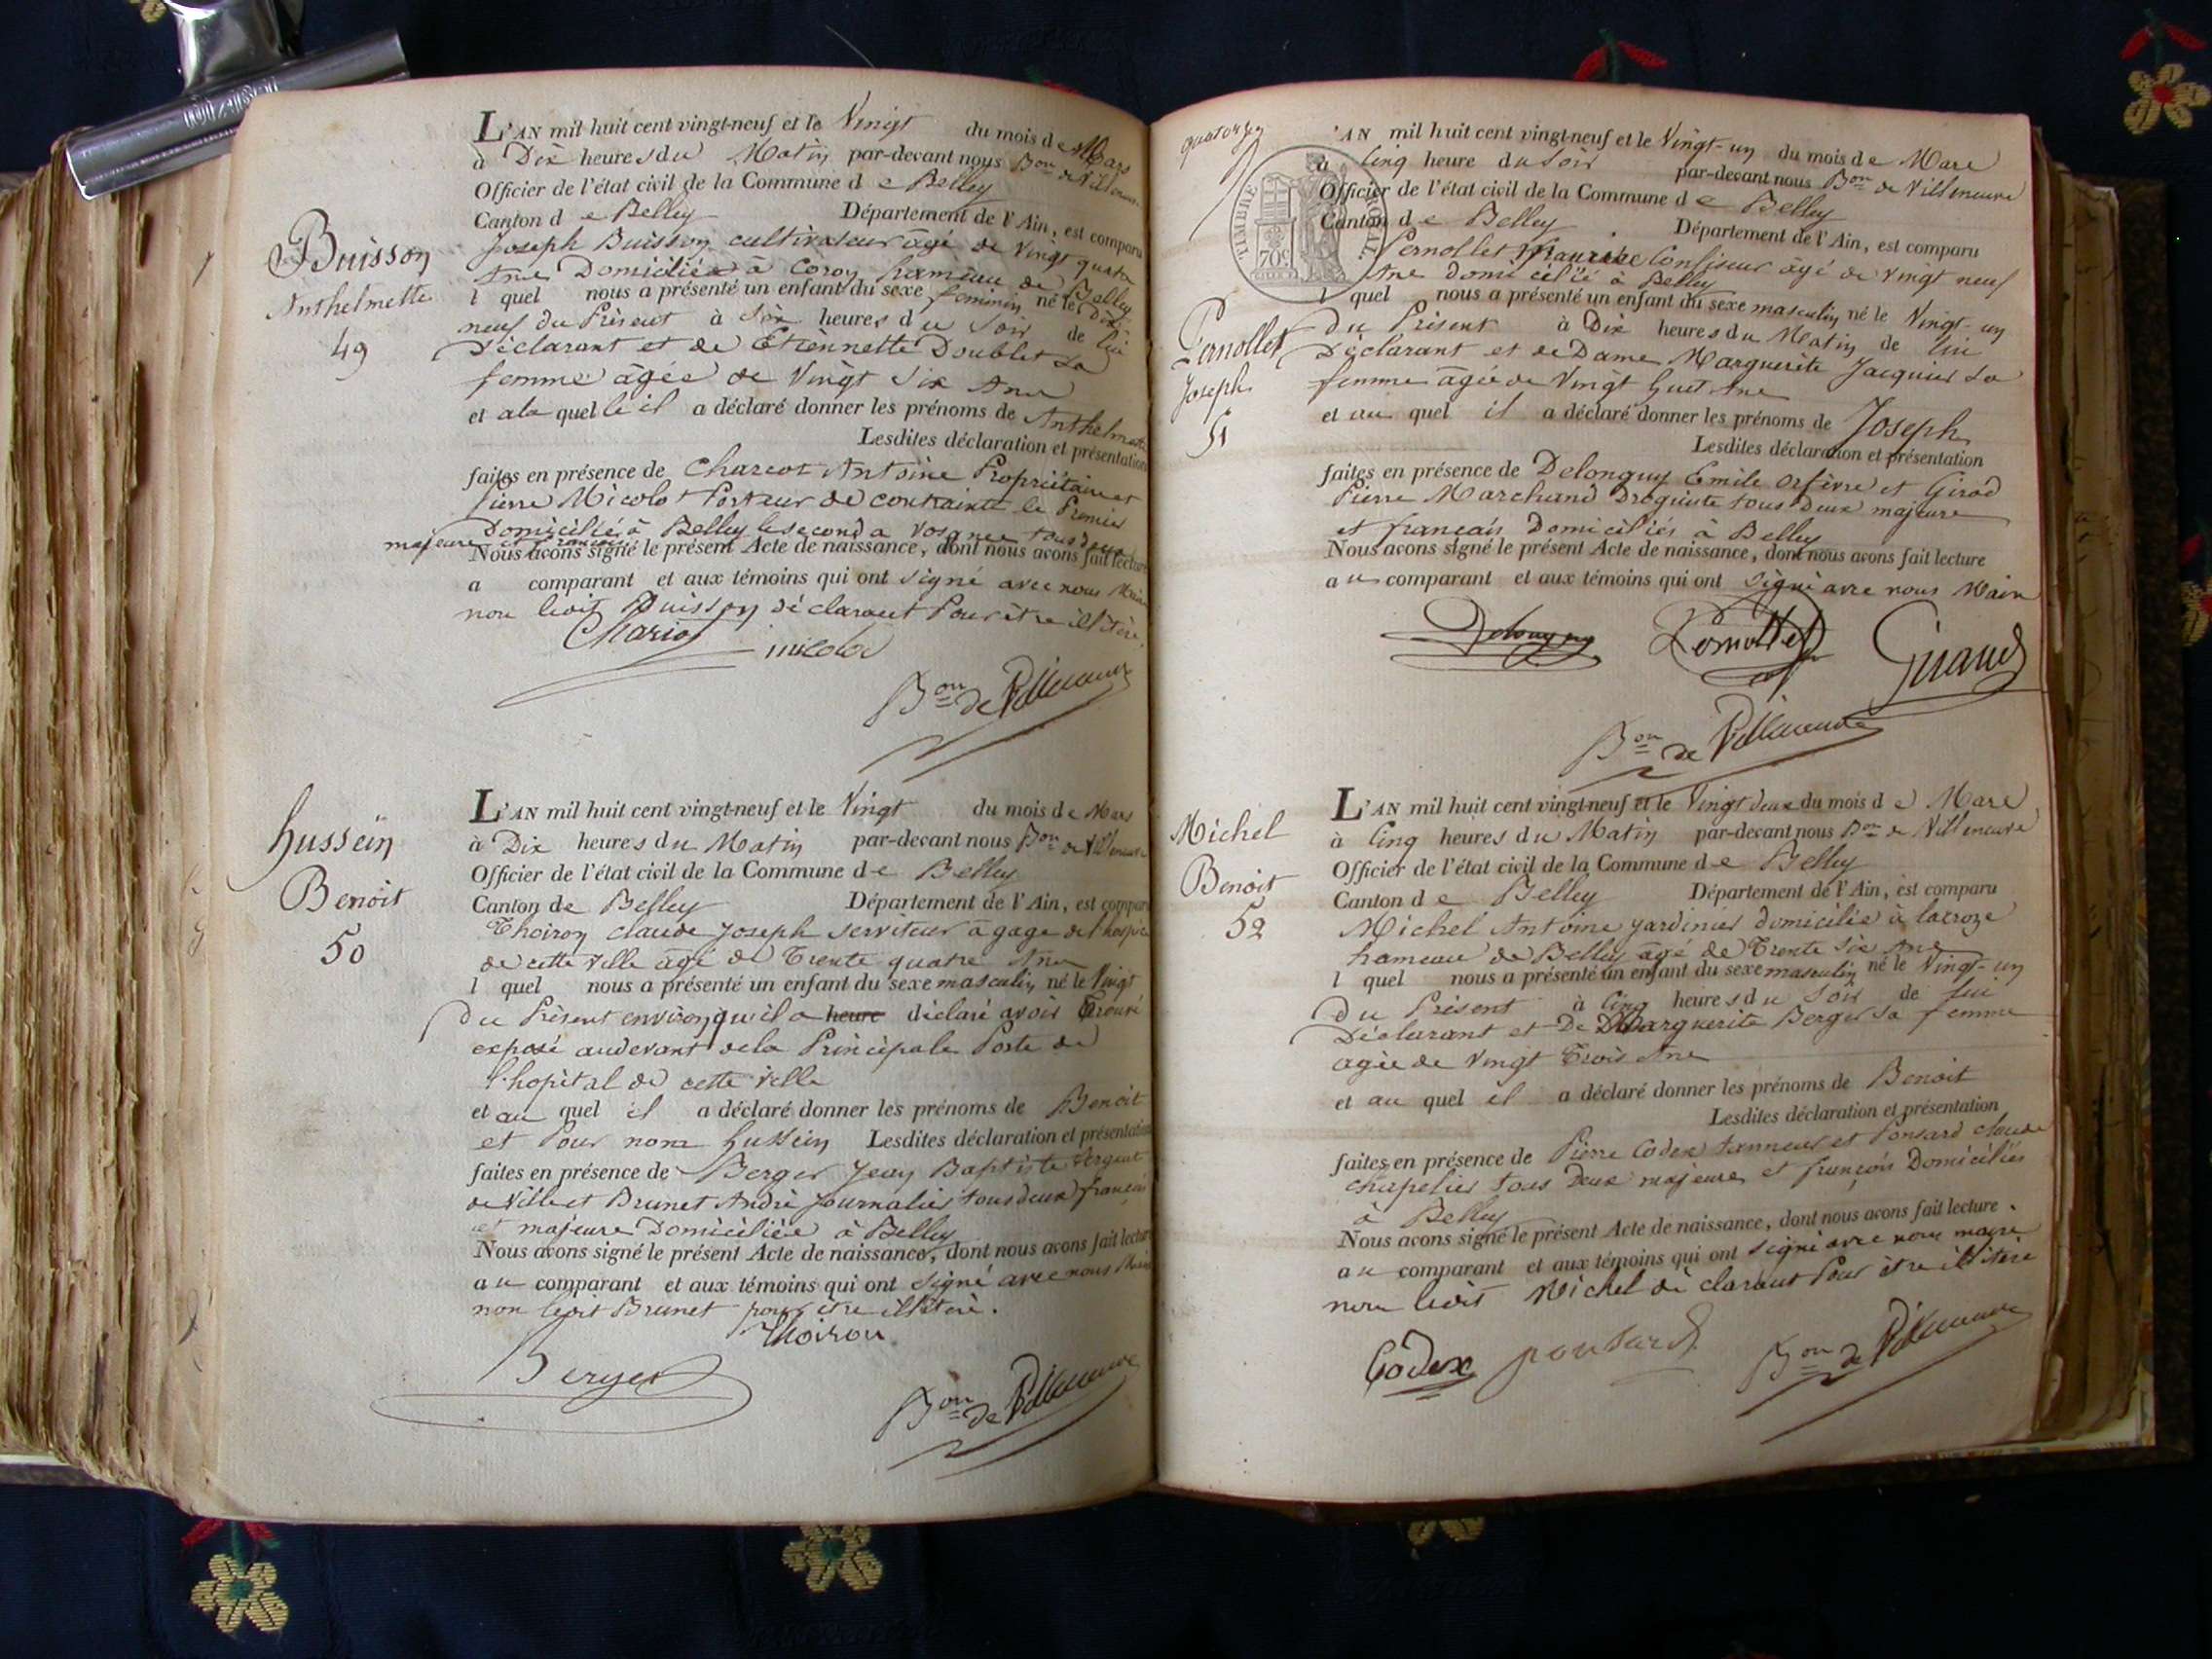 L'AN mil huit cent vingt-neuf et le Vingt du mois de Mars
à Dix heures du Matin par-devant nous Bon de Villeneuve
Officier de l'état civil de la Commune de Belley
Canton de Belley Département de l'Ain, est comparu
Joseph Buisson cultivateur âgé de Vingt quatre
Ans Domicilié à Coron hameau de Belley
l quel nous a présenté un enfant du sexe feminin né le Dix
neuf du Présent à Six heures du Soir de lui
Déclarant et de Etiennette Doublet sa
femme âgée de Vingt Six Ans
et a la quelle il a déclaré donner les prénoms de Anthelmette
Lesdites déclaration et présentation
faites en présence de Charcot Antoine Propriétaire et
Pierre Micolot Porteur de contrainte le Premier
Domicilié à Belley le second a tous deux
majeurs et français
Nous avons signé le présent Acte de naissance, dont nous avons fait lecture
a comparant et aux témoins qui ont signé avec nous Maire
non ledit Buisson déclarant Pour être illitéré
Buisson
Anthelmette
49
micolot
Bon de Villeneuve
L'AN mil huit cent vingt-neuf et le Vingt du mois de Mars
à Dix heures du Matin par-devant nous Bon de Villeneuve
Officier de l'état civil de la Commune de Belley
Canton de Belley Département de l'Ain, est comparu
Thoiron Claude Joseph serviteur à gage de l'hospice
de cette Ville âgé de Trente quatre Ans
l quel nous a présenté un enfant du sexe masculin né le Vingt
du Présent environ qu'il a heure déclaré avoir Trouvé
exposé audevant de la Principale Porte de
l'hopital de cette ville
et au quel il a déclaré donner les prénoms de Benoit
et Pour nom hussein Lesdites déclaration et présentation
faites en présence de Berger Jean Baptiste Sergent
de Ville et Brunet André Journalier tous deux français
et majeurs Domiciliés à Belley
Nous avons signé le présent Acte de naissance, dont nous avons fait lecture
au comparant et aux témoins qui ont signé avec nous Maire
non ledit Brunet pour être illitéré.
hussein
Benoit
50
thoiron
Berger
Bon de Villeneuve
quatorze
TIMBRE ROYAL
70c
'AN mil huit cent vingt-neuf et le Vingt-un du mois de Mars
à Cinq heure du Soir par-devant nous Bon de Villeneuve
Officier de l'état civil de la Commune de Belley
Canton de Belley Département de l'Ain, est comparu
Pernollet Confiseur âgé de vingt neuf
Ans domicilié à Belley
l quel nous a présenté un enfant du sexe masculin né le Vingt-un
du Présent à Dix heures du Matin de lui
Déclarant et de Dame Marguerite Jacquier sa
femme âgée de Vingt huit Ans
et au quel il a déclaré donner les prénoms de Joseph
Lesdites déclaration et présentation
faites en présence de Delongny Emile orfèvre et Girod
Pierre Marchand Droguiste tous Deux majeurs
et français Domiciliés à Belley
Nous avons signé le présent Acte de naissance, dont nous avons fait lecture
au comparant et aux témoins qui ont signé avec nous Maire
Pernollet
Joseph
51
Delongny Pernollet
Bon de Villeneuve
L'AN mil huit cent vingt-neuf et le Vingt deux du mois de Mars
à Cinq heures du Matin par-devant nous Bon de Villeneuve
Officier de l'état civil de la Commune de Belley
Canton de Belley Département de l'Ain, est comparu
Michel Antoine jardinier domicilié à lacroze
hameau de Belley âgé de Trente Six Ans
l quel nous a présenté un enfant du sexe masculin né le Vingt-un
du Présent à Cinq heures du Soir de lui
Déclarant et De Marguerite Berger sa femme
agée de Vingt Trois Ans
et au quel il a déclaré donner les prénoms de Benoit
Lesdites déclaration et présentation
faites en présence de Pierre Codex tanneur et Ponsard Claude
chapelier tous Deux majeurs et français Domiciliés
à Belley
Nous avons signé le présent Acte de naissance, dont nous avons fait lecture
au comparant et aux témoins qui ont signé avec nous maire
non ledit Michel déclarant Pour être illitéré
Michel
Benoit
52
Codex ponsard
Bon de Villeneuve